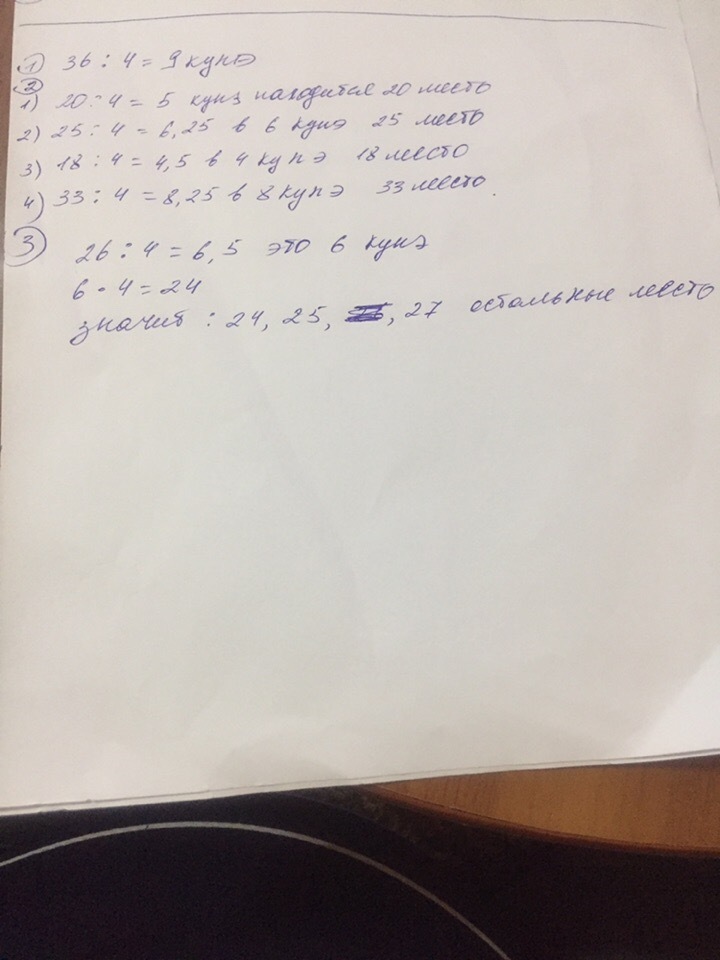 ① 36 : 4 = 9 купэ
②
1) 20 : 4 = 5 купэ находится 20 место
2) 25 : 4 = 6,25 в 6 купэ 25 место
3) 18 : 4 = 4,5 в 4 купэ 18 место
4) 33 : 4 = 8,25 в 8 купэ 33 место.
③ 26 : 4 = 6,5 это 6 купэ
6 · 4 = 24
значит : 24, 25, , 27 остальные место